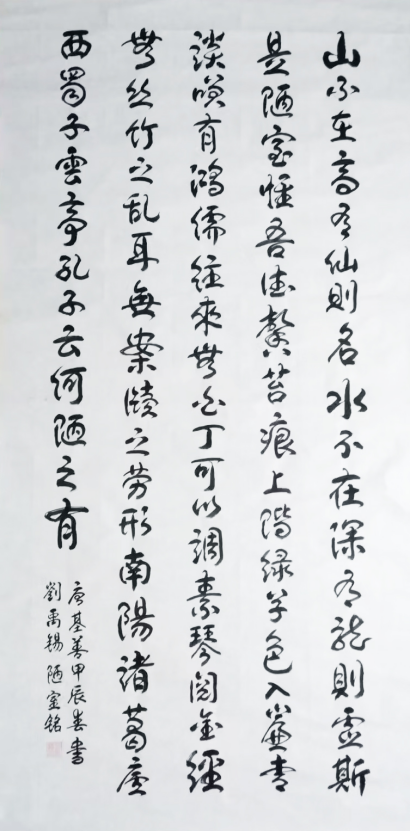 山不在高有仙則名水不在深有龍則靈斯
是陋室惟吾德馨苔痕上階緑草色入簾青
談笑有鴻儒往來無白丁可以調素琴閲金經
無丝竹之乱耳無案牘之劳形南陽諸葛廬
西蜀子雲亭孔子云何陋之有
唐基善甲辰春書
劉禹錫陋室铭